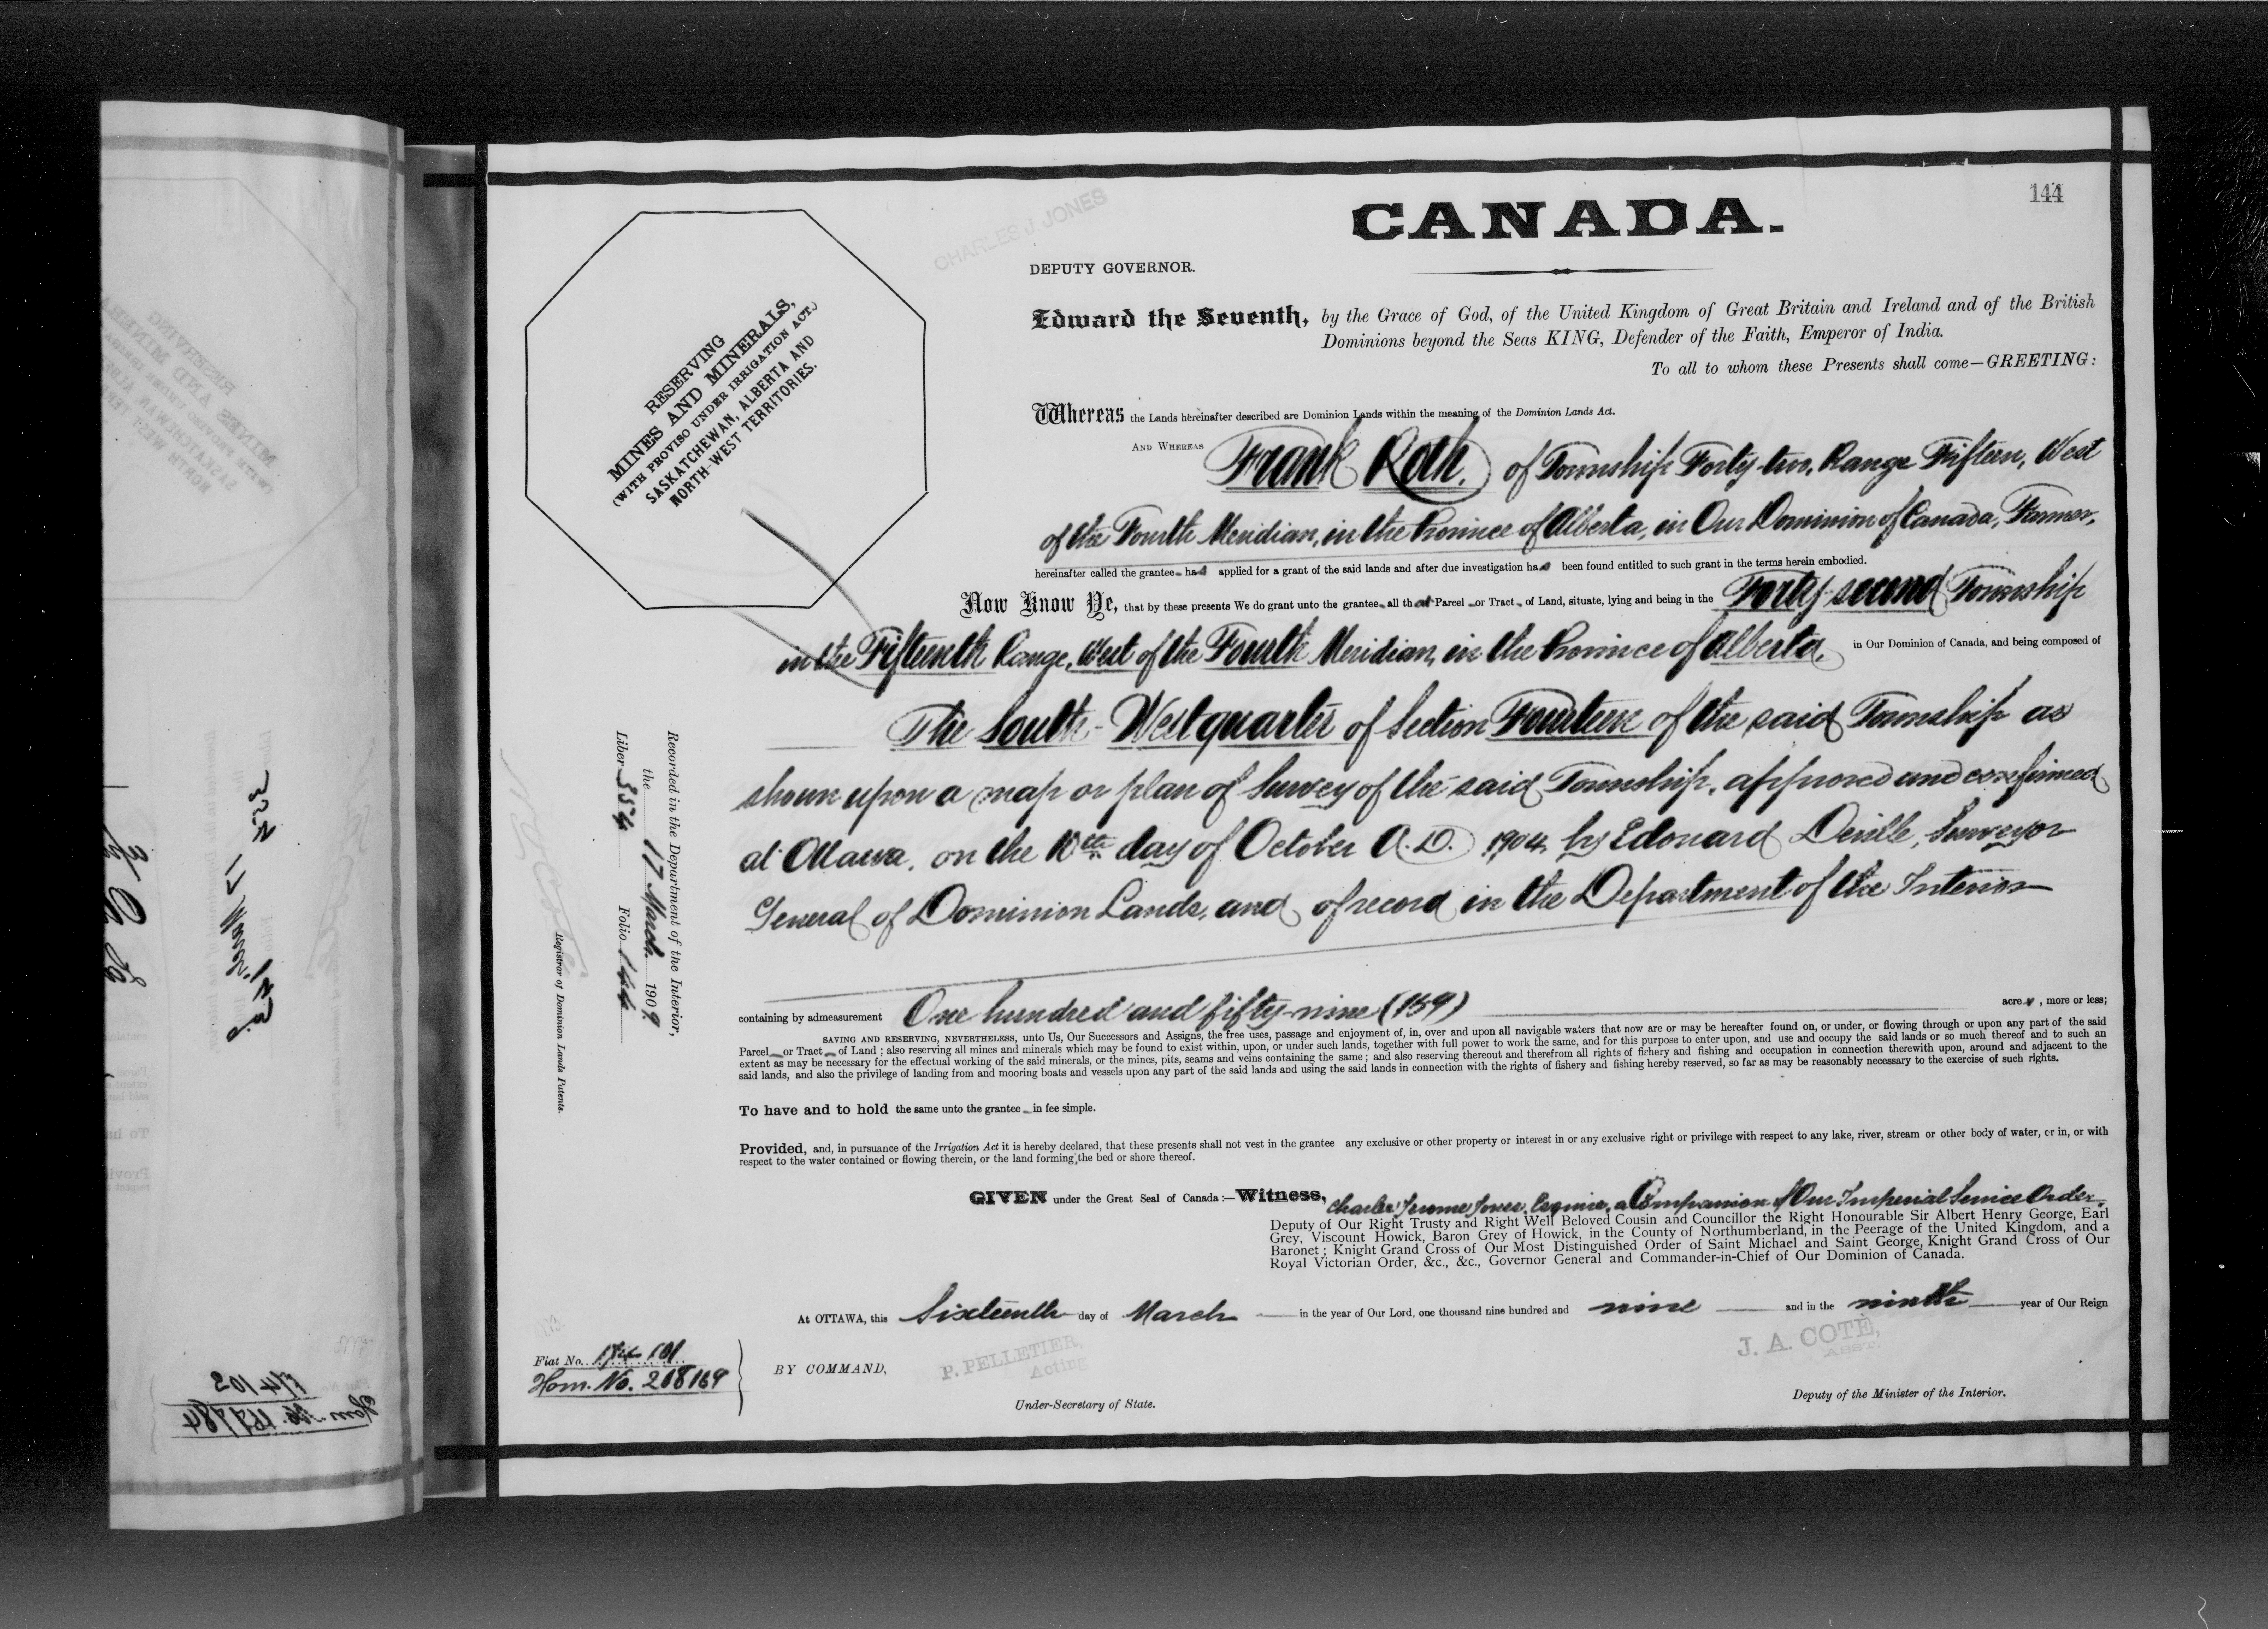 144
CANADA.
CHARLES J. JONES
DEPUTY GOVERNOR.
Edward the Seventh, by the Grace of God, of the United Kingdom of Great Britain and Ireland and of the British
Dominions beyond the Seas KING, Defender of the Faith, Emperor of India.
To all to whom these Presents shall come—GREETING:
RESERVING
MINES AND MINERALS,
(WITH PROVISO UNDER IRRIGATION ACT.)
SASKATCHEWAN, ALBERTA AND
NORTH-WEST TERRITORIES.
Whereas the Lands hereinafter described are Dominion Lands within the meaning of the Dominion Lands Act.
AND WHEREAS Frank Roth, of Township Forty-two, Range Fifteen, West
of the Fourth Meridian, in the Province of Alberta, in Our Dominion of Canada, Farmer,
hereinafter called the grantee has applied for a grant of the said lands and after due investigation has been found entitled to such grant in the terms herein embodied.
Now Know Ye, that by these presents We do grant unto the grantee all that Parcel or Tract of Land, situate, lying and being in the Forty-second Township
in the Fifteenth Range, West of the Fourth Meridian, in the Province of Alberta, in Our Dominion of Canada, and being composed of
The South-West quarter of Section Fourteen of the said Township as
shown upon a map or plan of Survey of the said Township, approved and confirmed
at Ottawa, on the 10th day of October A.D. 1904, by Edouard Deville, Surveyor
General of Dominion Lands, and of record in the Department of the Interior
containing by admeasurement One hundred and fifty-nine (159) acres, more or less;
SAVING AND RESERVING, NEVERTHELESS, unto Us, Our Successors and Assigns, the free uses, passage and enjoyment of, in, over and upon all navigable waters that now are or may be hereafter found on, or under, or flowing through or upon any part of the said
Parcel or Tract of Land; also reserving all mines and minerals which may be found to exist within, upon, or under such lands, together with full power to work the same, and for this purpose to enter upon, and use and occupy the said lands or so much thereof and to such an
extent as may be necessary for the effectual working of the said minerals, or the mines, pits, seams and veins containing the same; and also reserving thereout and therefrom all rights of fishery and fishing and occupation in connection therewith upon, around and adjacent to the
said lands, and also the privilege of landing from and mooring boats and vessels upon any part of the said lands and using the said lands in connection with the rights of fishery and fishing hereby reserved, so far as may be reasonably necessary to the exercise of such rights.
To have and to hold the same unto the grantee in fee simple.
Provided, and, in pursuance of the Irrigation Act it is hereby declared, that these presents shall not vest in the grantee any exclusive or other property or interest in or any exclusive right or privilege with respect to any lake, river, stream or other body of water, or in, or with
respect to the water contained or flowing therein, or the land forming the bed or shore thereof.
GIVEN under the Great Seal of Canada:—Witness, Charles Jerome Jones, Esquire, a Companion of Our Imperial Service Order,
Deputy of Our Right Trusty and Right Well Beloved Cousin and Councillor the Right Honourable Sir Albert Henry George, Earl
Grey, Viscount Howick, Baron Grey of Howick, in the County of Northumberland, in the Peerage of the United Kingdom, and a
Baronet; Knight Grand Cross of Our Most Distinguished Order of Saint Michael and Saint George, Knight Grand Cross of Our
Royal Victorian Order, &c., &c., Governor General and Commander-in-Chief of Our Dominion of Canada.
At OTTAWA, this Sixteenth day of March in the year of Our Lord, one thousand nine hundred and nine and in the ninth year of Our Reign
BY COMMAND,
P. PELLETIER,
Acting
Under-Secretary of State.
J. A. COTÉ,
ASST.
Deputy of the Minister of the Interior.
Recorded in the Department of the Interior,
the 17 March 1909
Liber 354 Folio 144
Registrar of Dominion Lands Patents.
Fiat No.
Hom. No. 208169